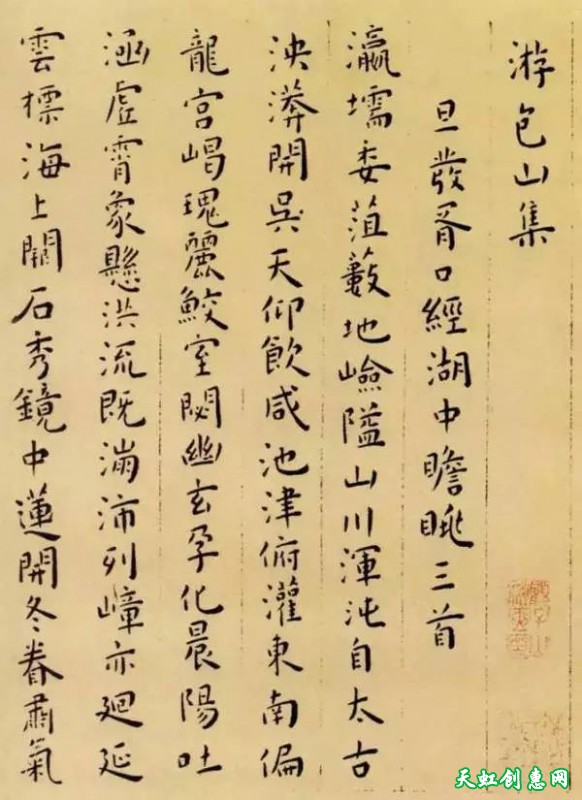 游包山集
旦發胥口經湖中瞻眺三首
瀛壖委菹藪地嶮隘山川渾沌自太古
泱漭開吳天仰飲咸池津俯灌東南偏
龍宮崵瑰麗鮫室閟幽玄孕化晨陽吐
涵虛霄象懸洪流既滿沛列嶂亦廻延
雲標海上闕石秀鏡中蓮開冬眷肅氣
天虹创惠网